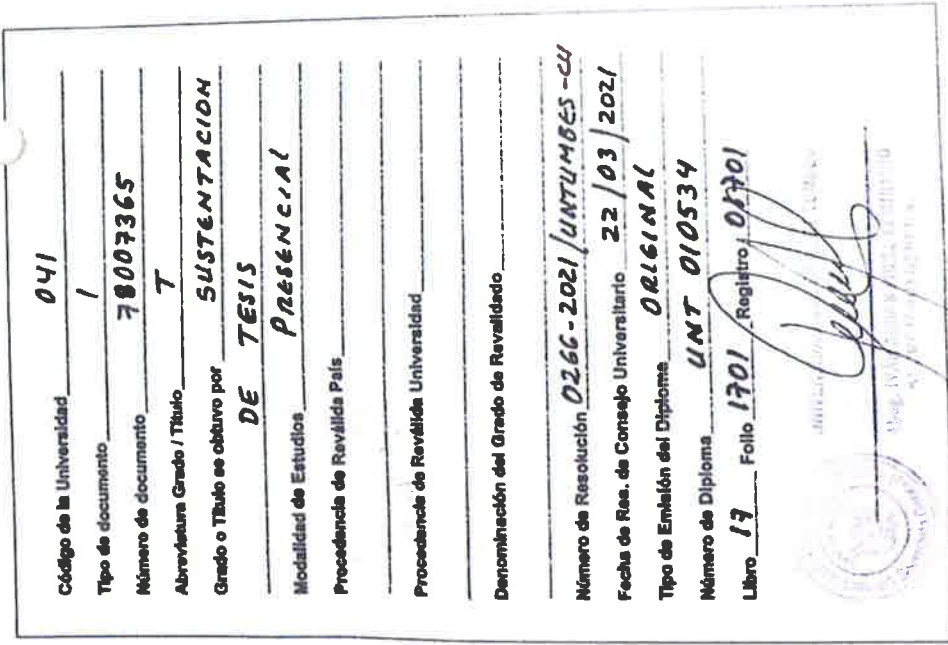 Código de la Universidad 041
Tipo de documento 1
Número de documento 78007365
Abreviatura Grado / Título T
Grado o Título se obtuvo por SUSTENTACION
DE TESIS
Modalidad de Estudios PRESENCIAL
Procedencia de Reválida País
Procedencia de Reválida Universidad
Denominación del Grado de Revalidado
Número de Resolución 0266-2021/UNTUMBES-CU
Fecha de Res. de Consejo Universitario 22/03/2021
Tipo de Emisión del Diploma ORIGINAL
Número de Diploma UNT 010534
Libro 17 Folio 1701 Registro